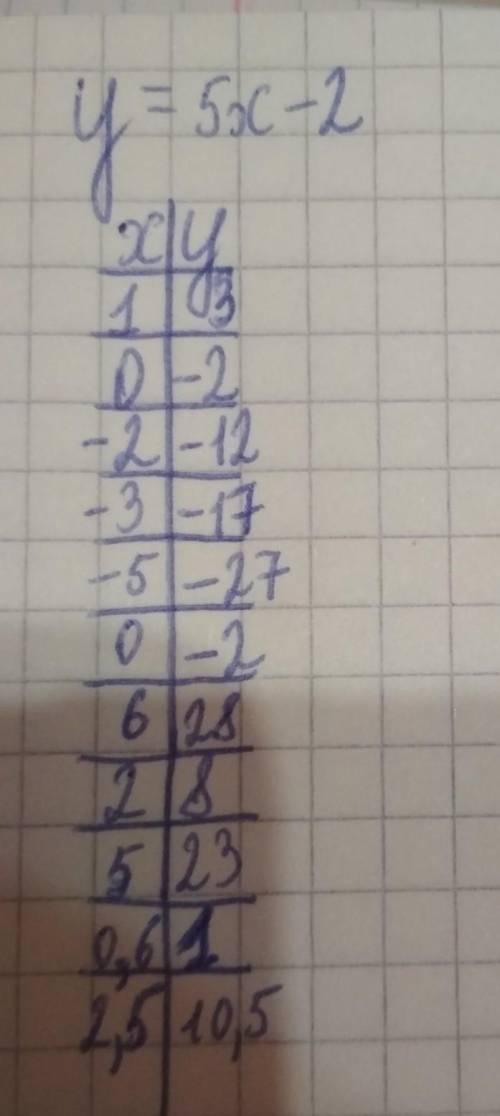 y = 5x - 2
x y
1 3
0 -2
-2 -12
-3 -17
-5 -27
0 -2
6 28
2 8
5 23
0,6 1
2,5 10,5